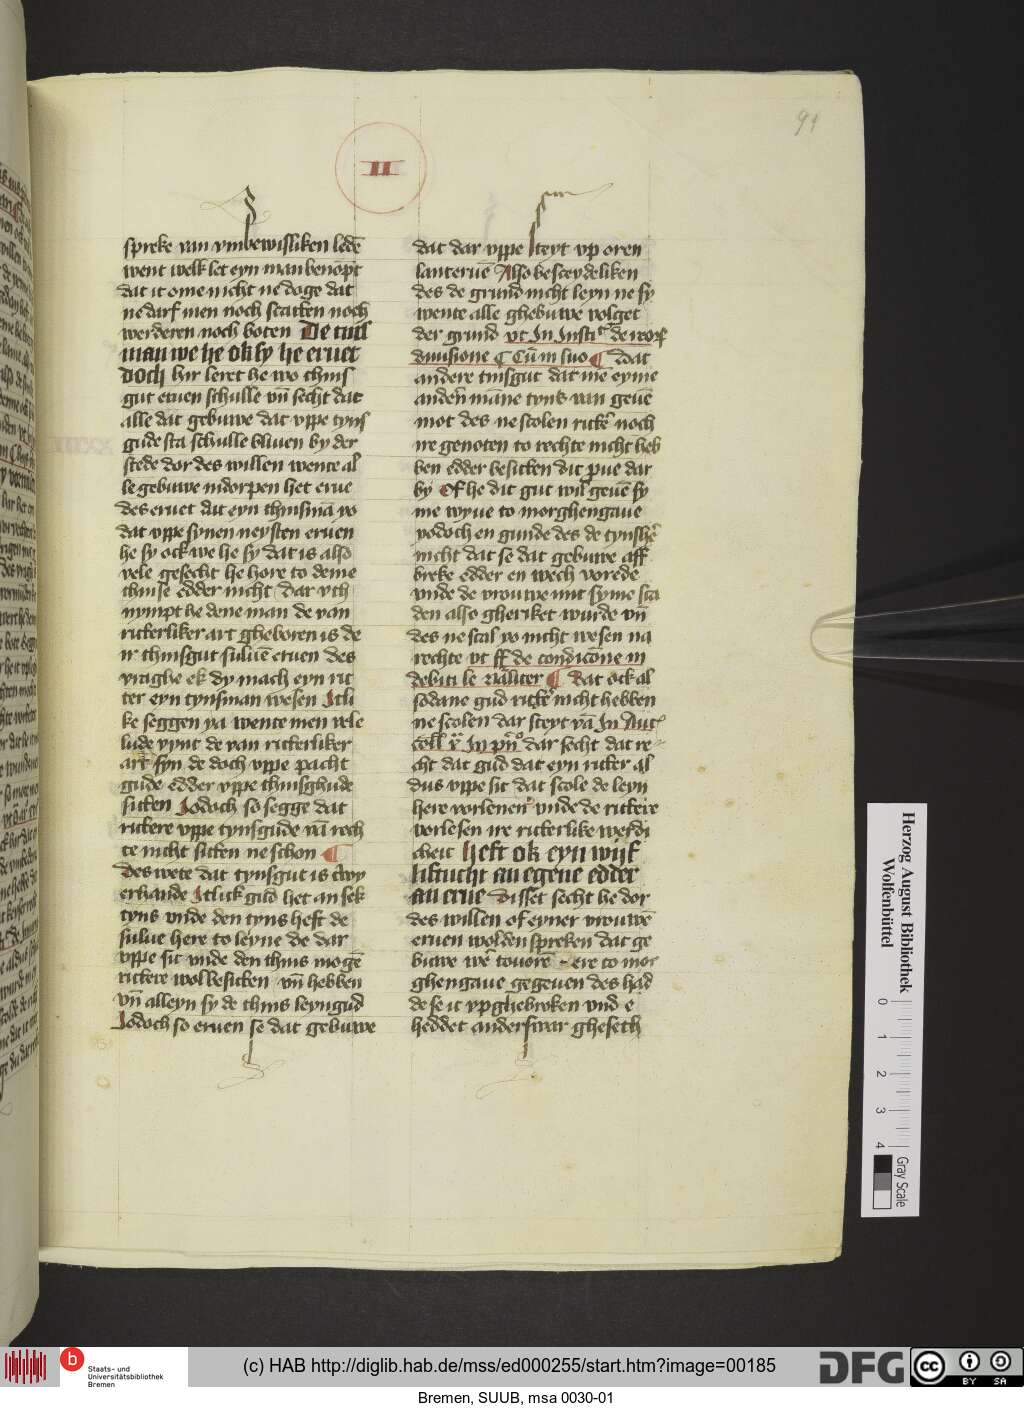 91
II
spreke van vmbewisliken lēdē
went welk let eyn man benōpt
dat it ome nicht ne doge dat
ne darf men noch scatten noch
werderen noch boten De tins
man we he ok sy he eruet
doch hir leret he wo thins
gut eruen schulle vn̄ secht dat
alle dat gebuwe dat vppe tyns
gude sta schulle bliuen by der
stede dor des willen wente al
le gebuwe in dorpen het erue
des eruet dit eyn thinsmā vo
dat vppe synen neysten eruen
he sy ock we he sy dat is also
vele gesecht he hore to deme
thinse edder nicht dar vth
nympt he dene man de van
rickerliker art gheboren is de
ir thinsgut suluē eruen des
vraghe ek dy mach eyn rit
ter eyn tynsman wesen Itli
ke seggen ya wente men vele
lude vynt de van rickerliker
art syn de doch vppe pacht
gude edder vppe thinsghude
sitten Jodoch so segge dat
rickere vppe tynsgude vā rech
te nicht sitten ne schon ¶
des wete dat tynsgut is twy
erhande Itlick gud het an sek
tyns vnde den tyns heft de
sulue here to leyne de dar
vppe sit vnde den thins mogē
rickere wol besitten vn̄ hebben
vn̄ alleyn sy de thins leyngud
Jodoch so eruen se dat gebuwe
dat dar vppe steyt vp oren
lanteruē Also besceydeliken
des de grund nicht leyn ne sy
wente alle ghebuwe volget
der grund vt In Insti de rer
diuisione ¶ Cū in suo ¶ dat
andere tinsgut dat mē eyme
andern̄ māne tyns van geuē
mot des ne scolen rickē noch
ire genoten to rechte nicht heb
ben edder besitten dit pue dar
by Of he dit gut wil geuē sy
me wyue to morghengaue
yodoch en gunde des de tynshē
nicht dat se dat gebuwe aff
breke edder en wech vorede
vnde de vrouwe mit syme sta
den also gheriket wurde vn̄
des ne scal yo nicht wesen na
rechte vt ff de condicōne in
debiti le ¶ Dat ock al
sodane gud rickē nicht hebben
ne scolen dar steyt vā In Aut
coll x In pn̄ dar secht dat re
cht dat gud dat eyn ricker al
dus vppe sit dat scole de leyn
here vorlenen vnde de rickere
vorlesen ire rickerlike werdi
cheit heft ok eyn wijf
liftucht an egene edder
an erue disset secht he dor
des willen of eyner vrouwē
eruen wolden spreken dat ge
buwe wē touorē ere to mor
ghengaue gegeuen des had
de se it vpghebroken vnd e
heddet anderswar gheseth
Herzog August Bibliothek
Wolfenbüttel
0 1 2 3 4
Gray Scale
b Staats- und
Universitätsbibliothek
Bremen
(c) HAB http://diglib.hab.de/mss/ed000255/start.htm?image=00185
DFG
cc BY SA
Bremen, SUUB, msa 0030-01